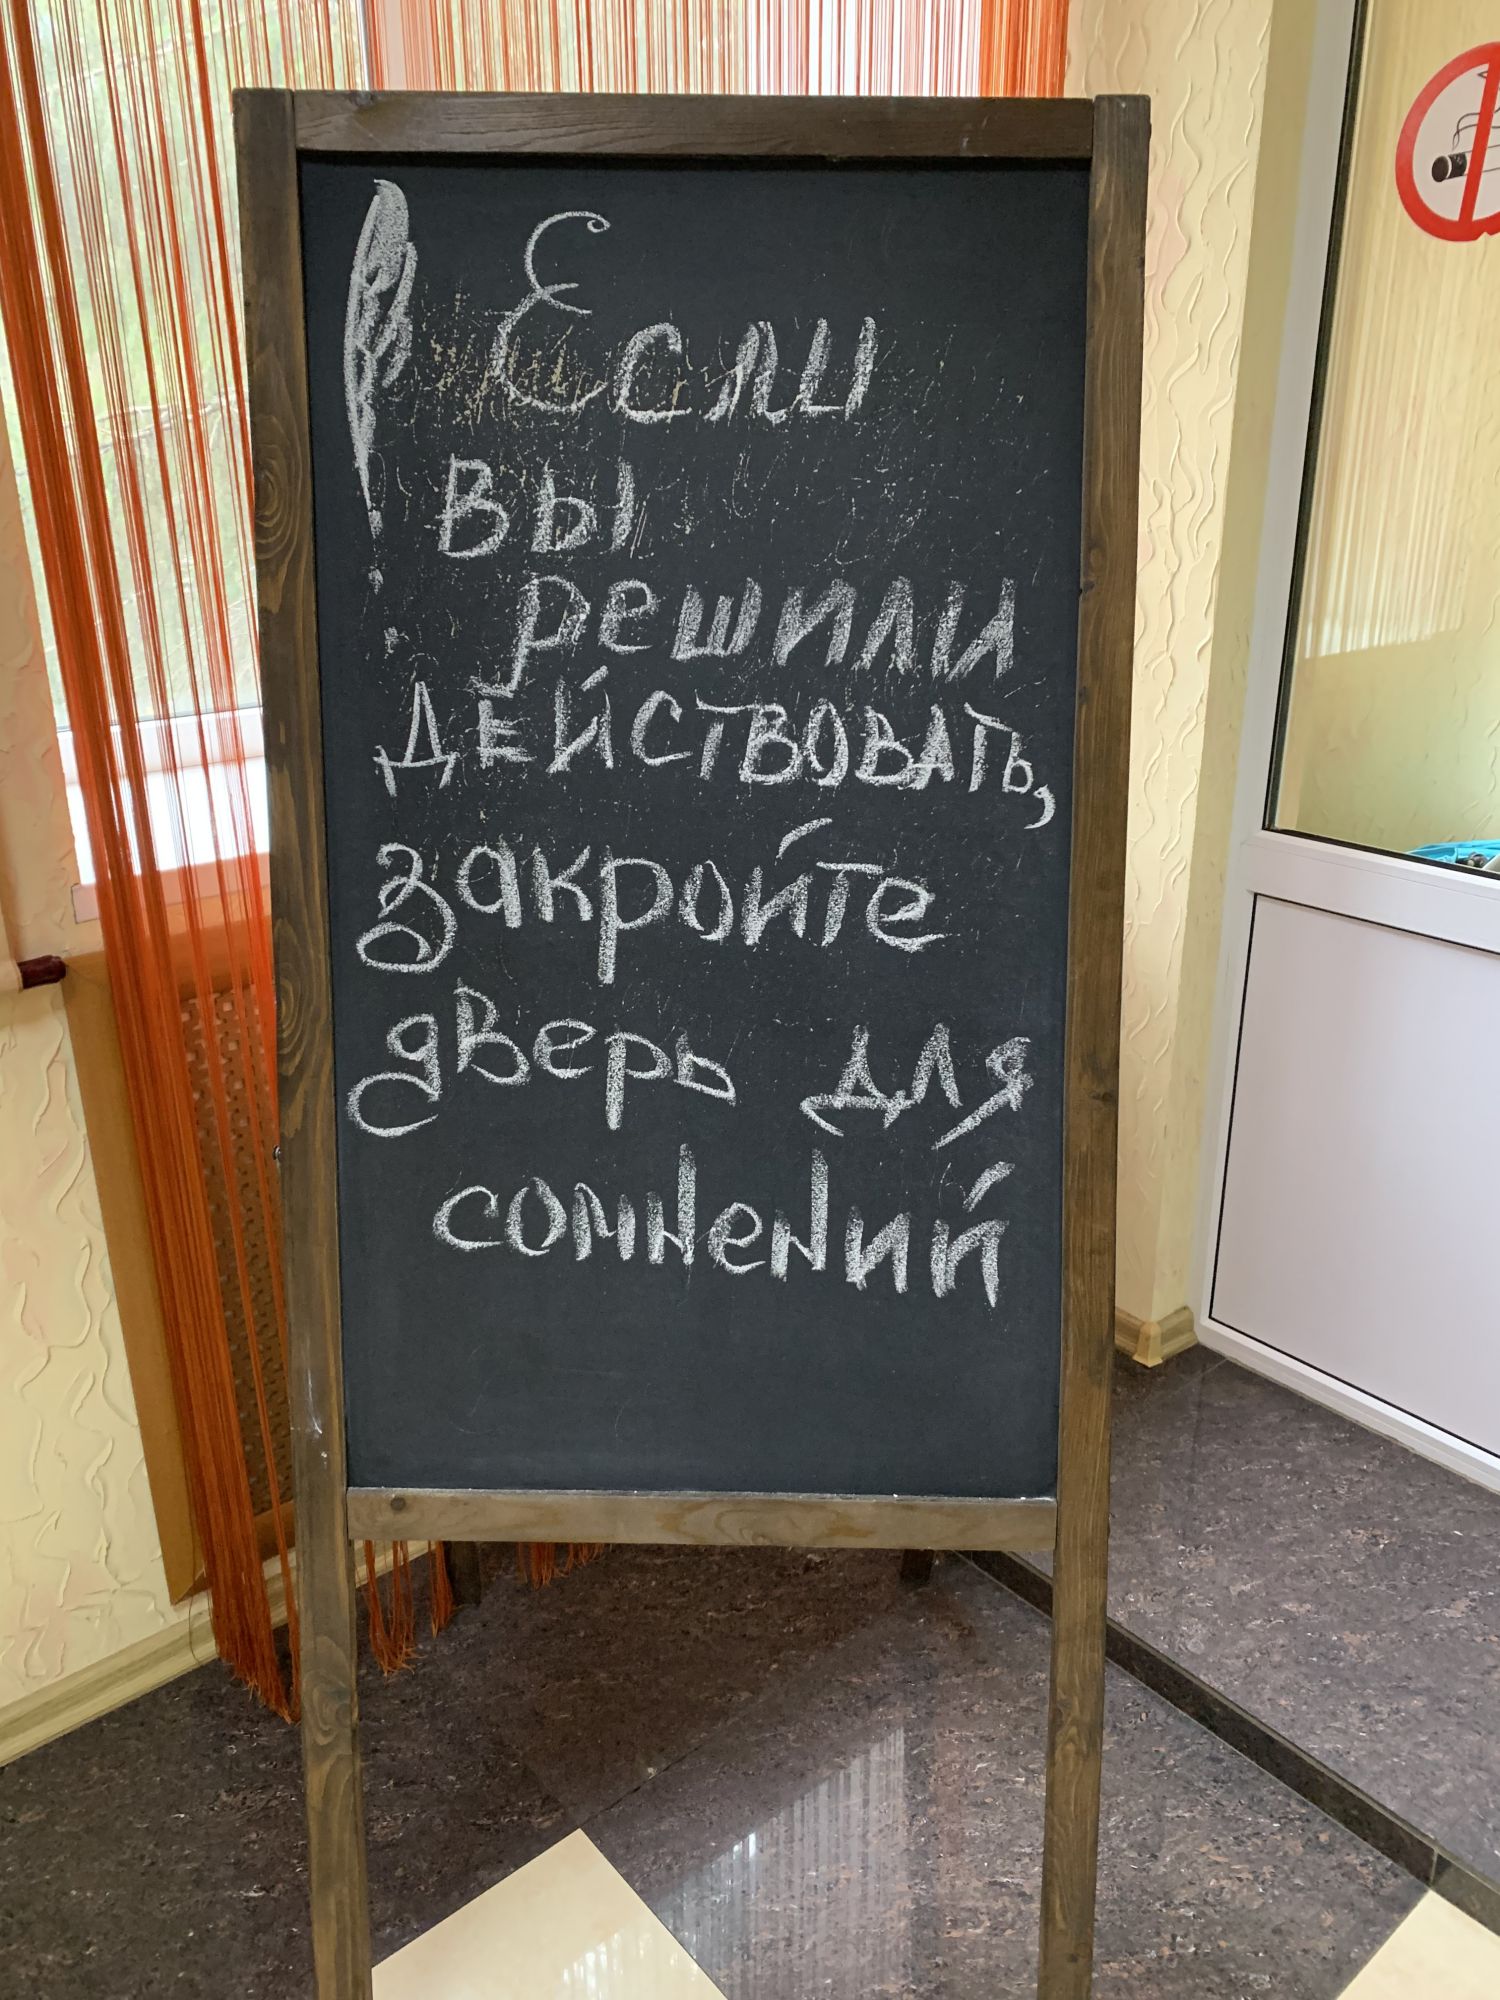 Если
вы
решили
ДЕЙСТВОВАТЬ,
закройте
дверь для
сомнений